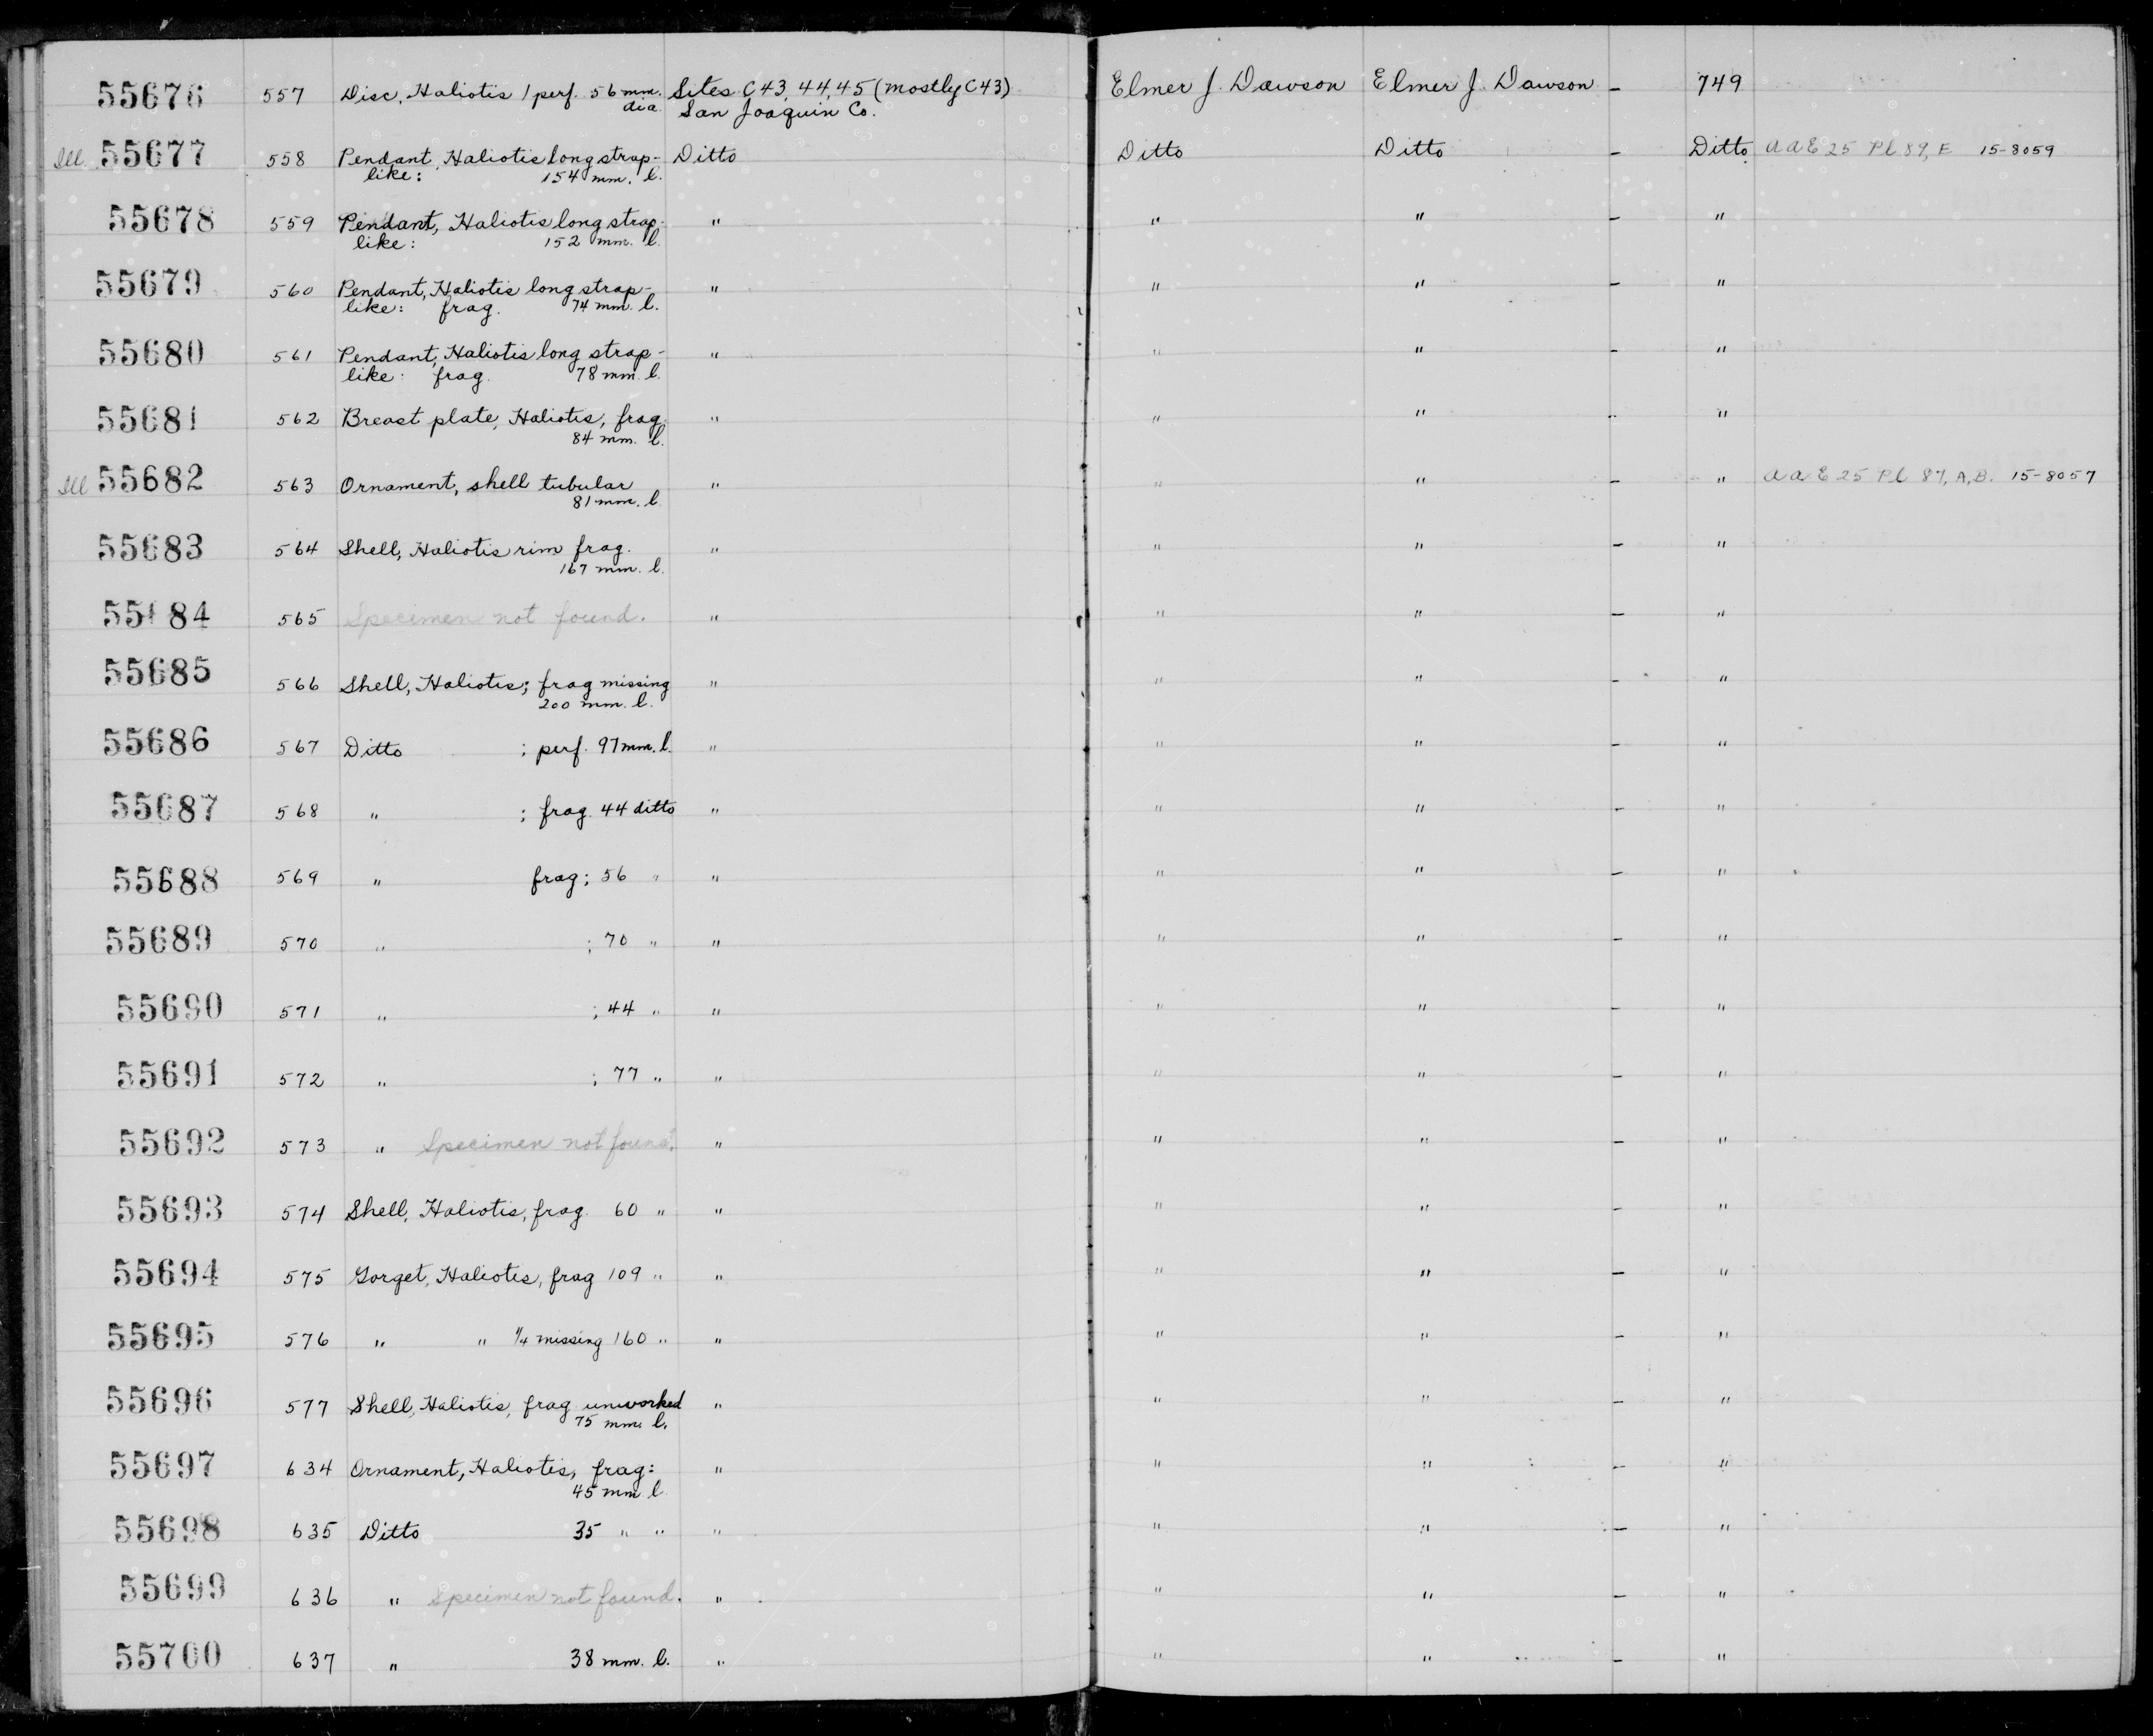 55676 557 Disc, Haliotis 1 perf. 56 mm. Sites C43, 44, 45 (mostly C43) Elmer J. Dawson Elmer J. Dawson - 749
dia. San Joaquin Co.
Ill. 55677 558 Pendant, Haliotis long strap- Ditto Ditto Ditto - Ditto AAE 25 Pl 89, E 15-8059
like: 154 mm. l.
55678 559 Pendant, Haliotis long strap- " " " - "
like: 152 mm. l.
55679 560 Pendant, Haliotis long strap- " " " - "
like: frag. 74 mm. l.
55680 561 Pendant, Haliotis long strap- " " " - "
like: frag. 78 mm. l.
55681 562 Breast plate, Haliotis, frag. " " " - "
84 mm. l.
Ill 55682 563 Ornament, shell tubular " " " - " AAE 25 Pl 87, A, B. 15-8057
81 mm. l.
55683 564 Shell, Haliotis rim frag. " " " - "
167 mm. l.
55684 565 Specimen not found. " " " - "
55685 566 Shell, Haliotis; frag missing " " " - "
200 mm. l.
55686 567 Ditto ; perf. 97 mm. l. " " " - "
55687 568 " ; frag. 44 ditto " " " - "
55688 569 " frag; 56 " " " " - "
55689 570 " ; 70 " " " " - "
55690 571 " ; 44 " " " " - "
55691 572 " ; 77 " " " " - "
55692 573 " Specimen not found. " " " - "
55693 574 Shell, Haliotis, frag. 60 " " " " - "
55694 575 Gorget, Haliotis, frag 109 " " " " - "
55695 576 " " 1/4 missing 160 " " " " - "
55696 577 Shell, Haliotis, frag unworked " " " - "
75 mm. l.
55697 634 Ornament, Haliotis, frag: " " " - "
45 mm. l.
55698 635 Ditto 35 " " " " " - "
55699 636 " Specimen not found. " " " - "
55700 637 " 38 mm. l. " " " - "